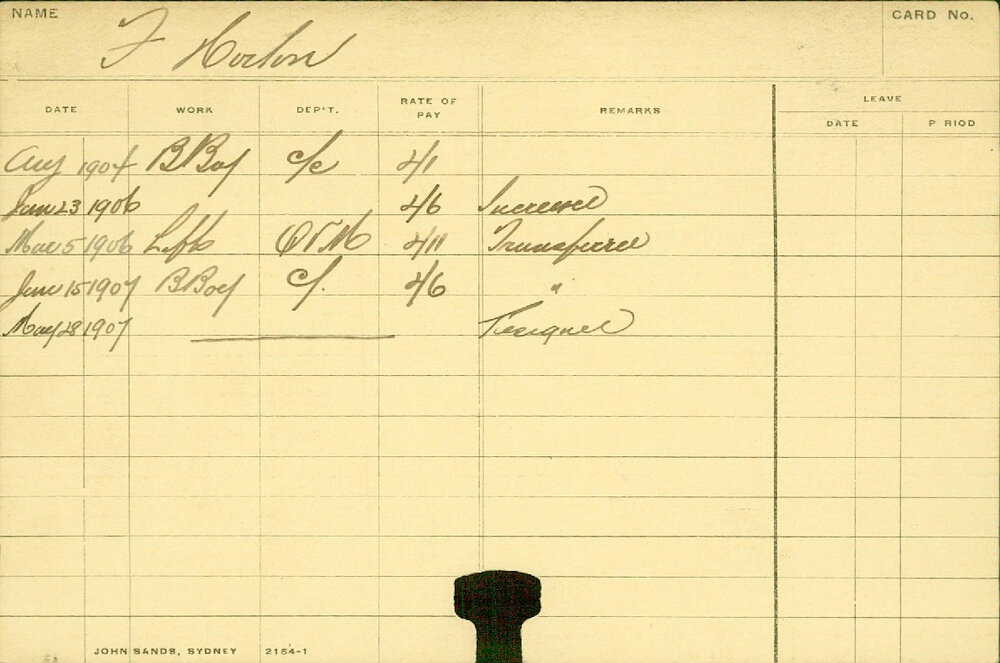 NAME
F Horton
CARD No.
DATE WORK DEP'T. RATE OF PAY REMARKS LEAVE
DATE P RIOD
Aug 1904 BBoy c/c 2/1
Jan 23 1906 2/6 Increased
Mar 5 1906 2/11 Transferred
Jan 15 1907 BBoy c/. 2/6 "
May 28 1907 Resigned
JOHN SANDS, SYDNEY 2154-1